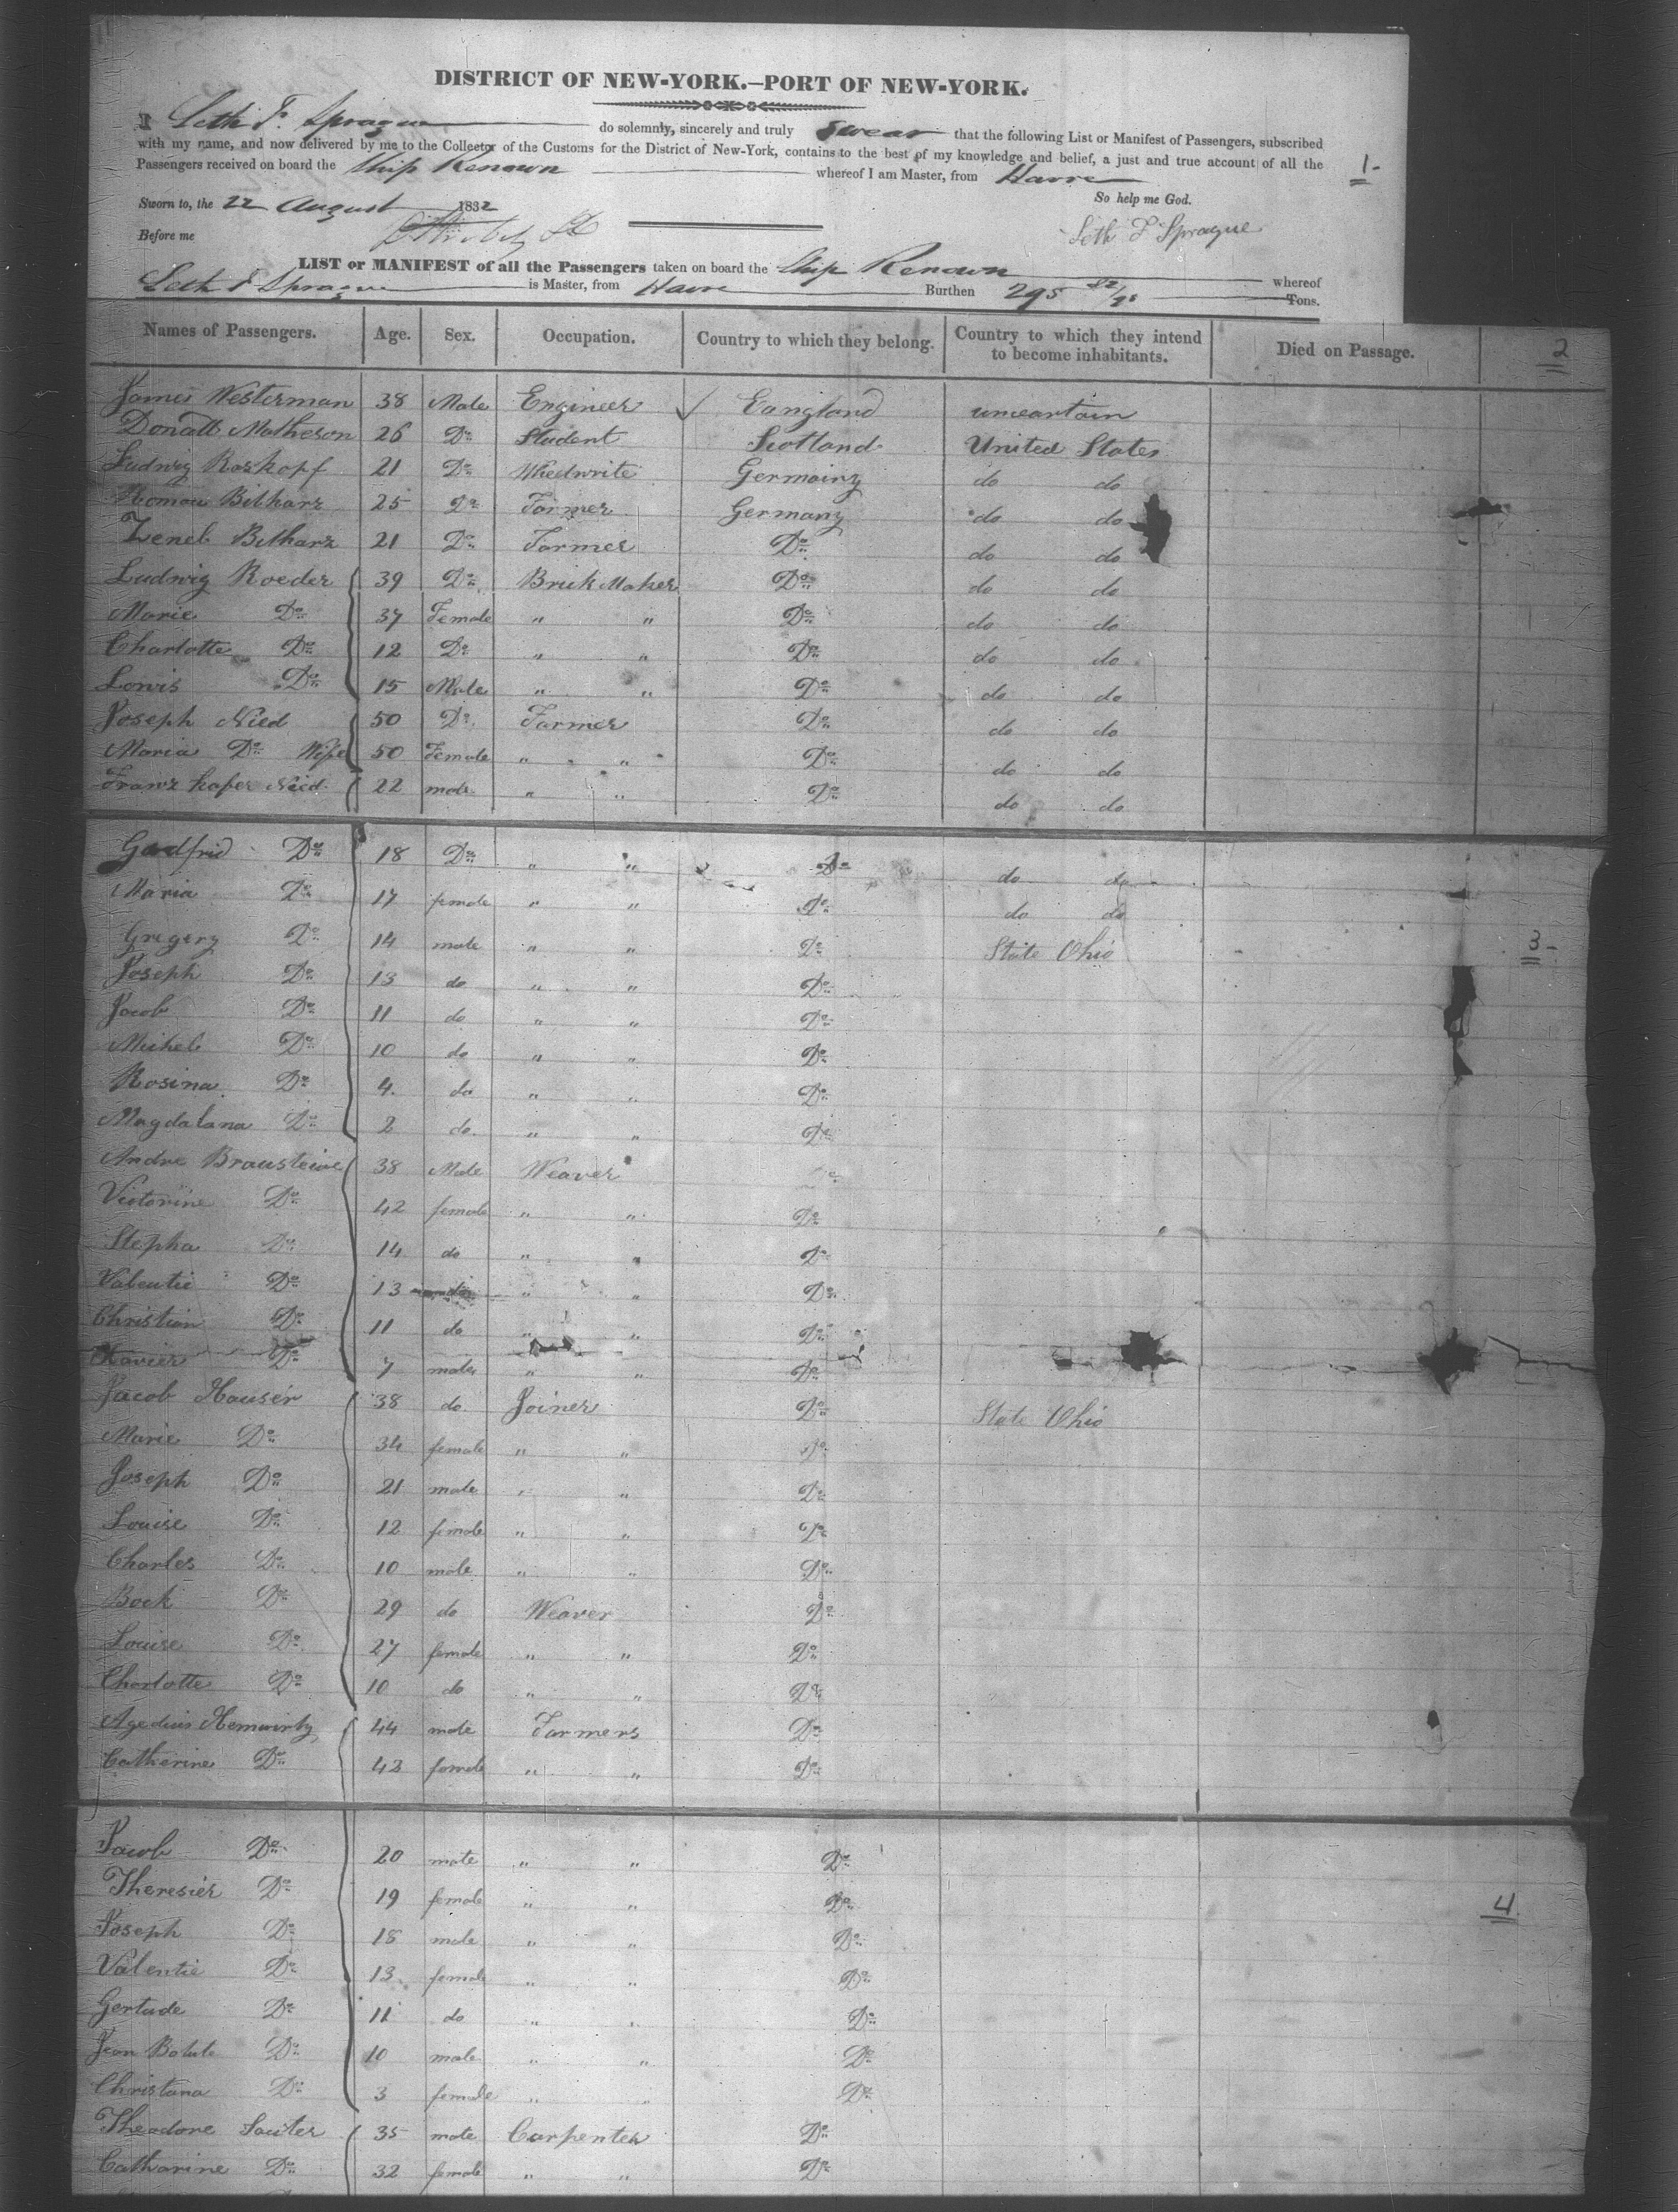 DISTRICT OF NEW-YORK.—PORT OF NEW-YORK.
I Seth F. Sprague do solemnly, sincerely and truly swear that the following List or Manifest of Passengers, subscribed
with my name, and now delivered by me to the Collector of the Customs for the District of New-York, contains to the best of my knowledge and belief, a just and true account of all the
Passengers received on board the Ship Renown whereof I am Master, from Havre
1-
So help me God.
Sworn to, the 22 August 1832
Before me
Seth F Sprague
LIST or MANIFEST of all the Passengers taken on board the Ship Renown whereof
Seth F Sprague is Master, from Havre Burthen 295 82/95 Tons.
Names of Passengers. Age. Sex. Occupation. Country to which they belong. Country to which they intend to become inhabitants. Died on Passage. 2
James Westerman 38 Male Engineer ✓ Eangland unceartain
Donald Matheson 26 Do Student Scotland United States
Ludwig Roskopf 21 Do Wheelwrite Germainy do do
Roman Bitharz 25 Do Farmer Germany do do
Zeneb Bitharz 21 Do Farmer Do do do
Ludwig Roeder 39 Do Brick Maker Do do do
Marie Do 37 Female " " Do do do
Charlotte Do 12 Do " " Do do do
Lowis Do 15 Male " " Do do do
Joseph Nied 50 Do Farmer Do do do
Maria Do Wife 50 Female " " Do do do
Franz Nied 22 male " " Do do do
Godfrid Do 18 Do " " Do do do
Maria Do 17 female " " Do do do
Gregery Do 14 male " " Do State Ohio 3-
Joseph Do 13 do " " Do
Jacob Do 11 do " " Do
Michel Do 10 do " " Do
Rosina Do 4 do " " Do
Magdalana Do 2 do " " Do
Andre Brausteine 38 Male Weaver Do
Victorine Do 42 female " " Do
Stepha Do 14 do " " Do
Valentie Do 13 " " Do
Christian Do 11 do " " Do
Xavier Do 7 male " " Do
Jacob Hauser 38 do Joiner Do State Ohio
Marie Do 34 female " " Do
Joseph Do 21 male " " Do
Louise Do 12 female " " Do
Charles Do 10 male " " Do
Bock Do 29 do Weaver Do
Louise Do 27 female " " Do
Charlotte Do 10 do " " Do
Agedius 44 male Farmers Do
Catherine Do 43 female " " Do
Jacob Do 20 male " " Do
Theresier Do 19 female " " Do 4
Joseph Do 18 male " " Do
Valentie Do 13 female " " Do
Gertude Do 11 do " " Do
Jean Do 10 male " " Do
Christana Do 3 female " " Do
Theodore Sauter 35 male Carpenter Do
Catharine Do 32 female " " Do